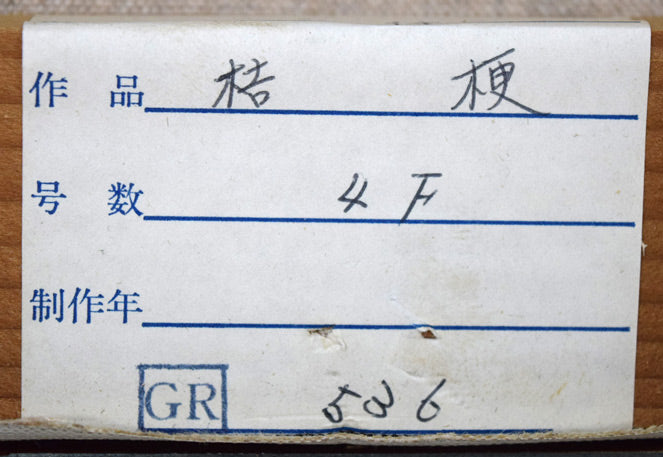 作品 桔梗
号数 4F
制作年
GR 536